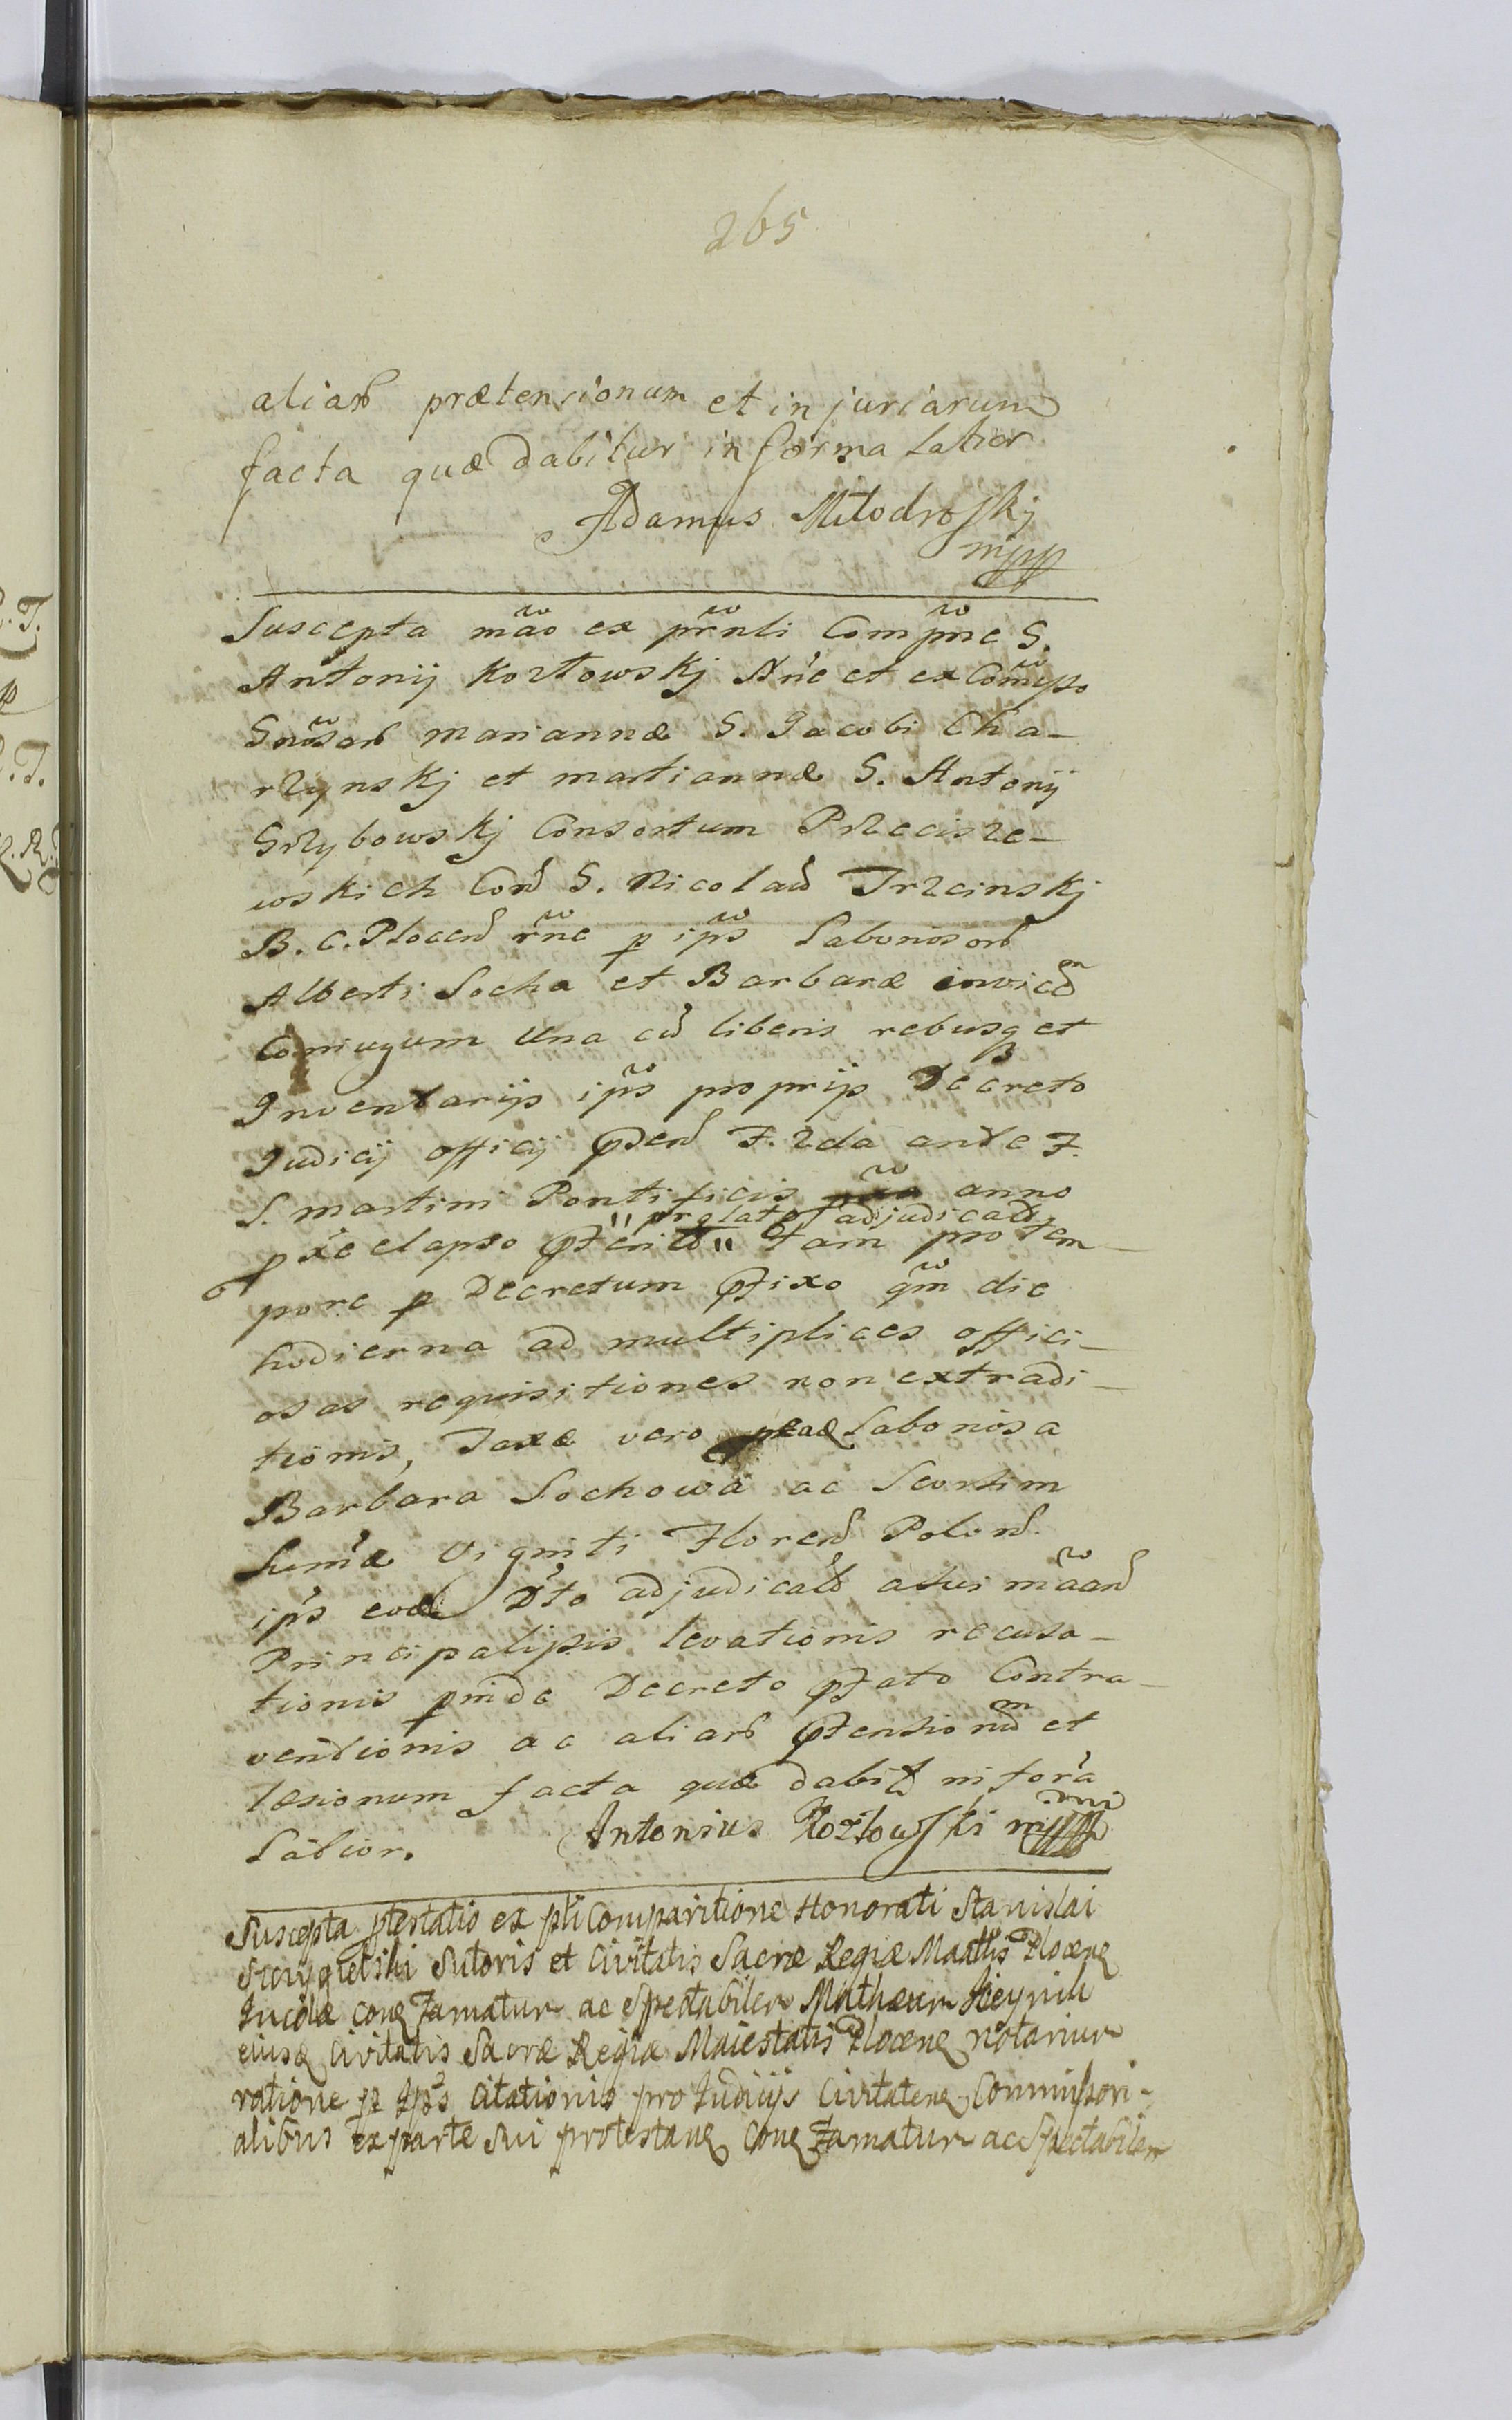 265
aliar prætensionum et injuriarum
facta quæ dabitur in forma latior
Adamus Młodroskj
mpp
Suscepta mão ex pr̃nli Comp̃ne G.
Antonij Kozłowskj Añe et ex Com̃pso
Gñosar Mariannæ G. Jacobi Cha-
rzynskj et Martiannæ G. Antonij
Grzybowskj Consortum Przecisze-
wskich Con G. Nicolau Trzcinskj
B. C. Plocen rñe p ip̃s Laboriosor
Alberti Socha et Barbaræ invicem
Coniugum Una cu liberis rebusq et
Inventarijs ip̃s proprijs Decreto
Judicij officij præsen F. 2da ante F.
S. Martini Pontificis anno
prolato adjudicat
pxe elapso præterito tam pro tem-
pore p Decretum præfixo qm̃ die
hodierna ad multiplices offici-
osas requisitiones non extradi-
tionis, Taxæ vero Laboriosa
Barbara Sochowa ac Seorsim
Sumæ Viginti Floren Polon
ip̃s eod Dto adjudicat a sui mãan
Principalipsis levationis recusa-
tionis proinde Decreto præfato Contra-
ventionis ac aliar prætensionum et
læsionum facta quæ dabit in forã
Latior. Antonius Kozłowski mpp
Suscepta ptestatio ex pñti Comparitione Honorati Stanislai
Sutoris et Civitatis Sacræ Regiæ Maattis Plocenę
Incolæ conę Famatum ac Spectabilem Mathæum
eiusę Civitatis Sacræ Regiæ Maiestatis Plocenę notarium
ratione p Ip̃s Citationis pro Judicijs Civitatenę Commissori-
alibus ex parte sui protestanę conę Famatum ac Spectabilem